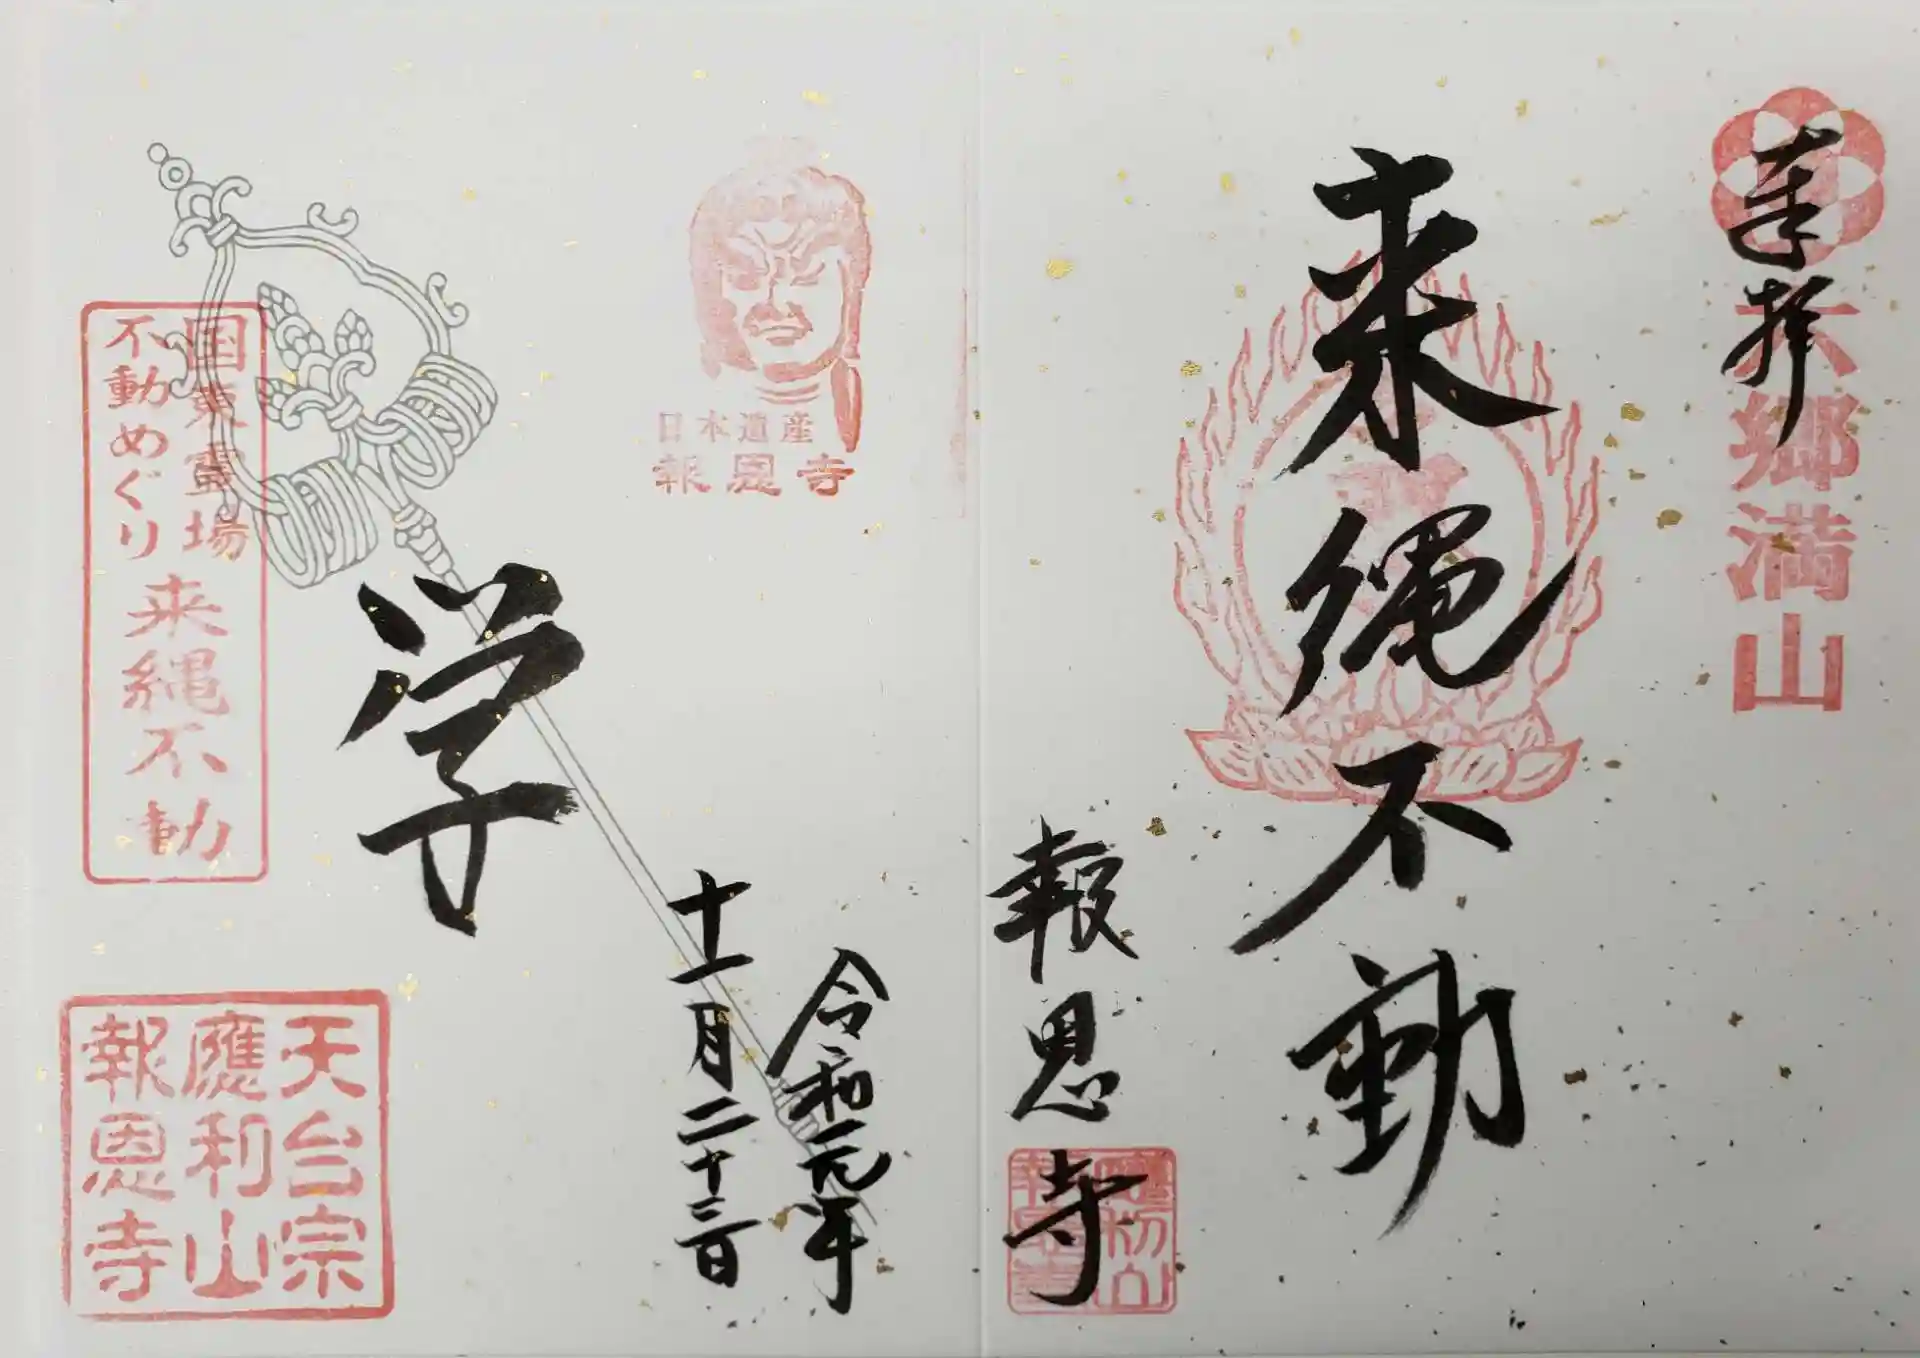 奉拝
六郷満山
来縄不動
報恩寺
日本遺産
報恩寺
令和元年
十一月二十三日
学
国東霊場
不動めぐり
来縄不動
天台宗
應利山
報恩寺